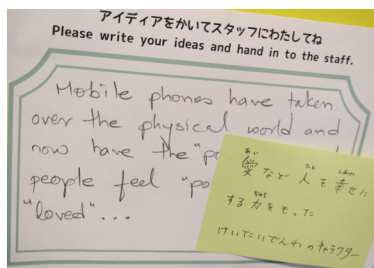 アイディアをかいてスタッフにわたしてね
Please write your ideas and hand in to the staff.
Mobile phones have taken
over the physical world and
now have the "po
people feel "po
"loved"...
愛など人を幸せに
する力をもった
けいたいでんわのキャラクター